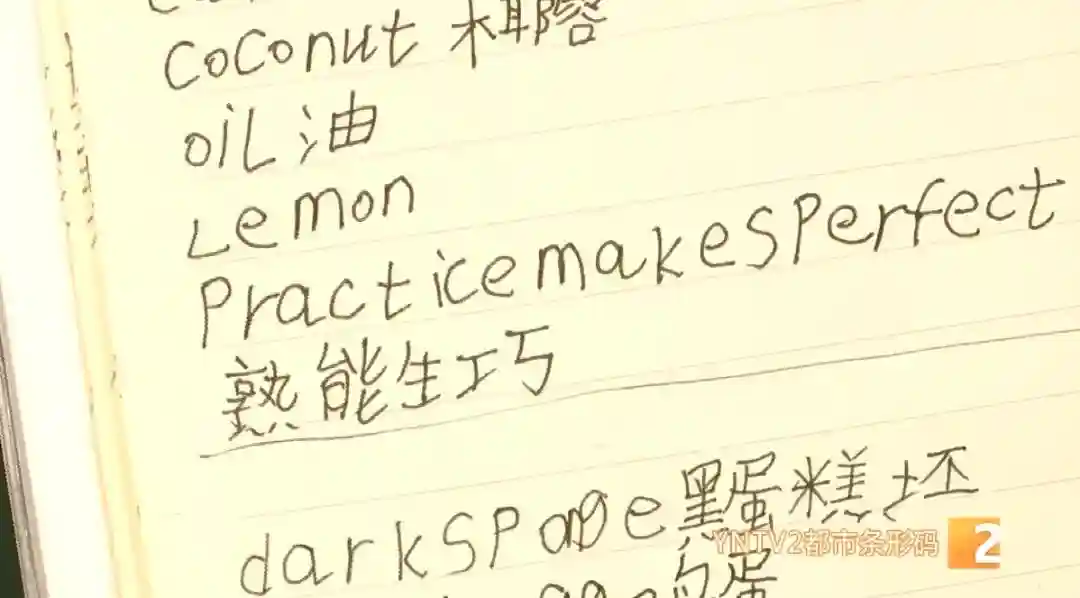 coconut 椰容
oil 油
Lemon
Practice makes Perfect
熟能生巧
dark sponge 黑蛋糕坯
YNTV2都市条形码 2
鸡蛋